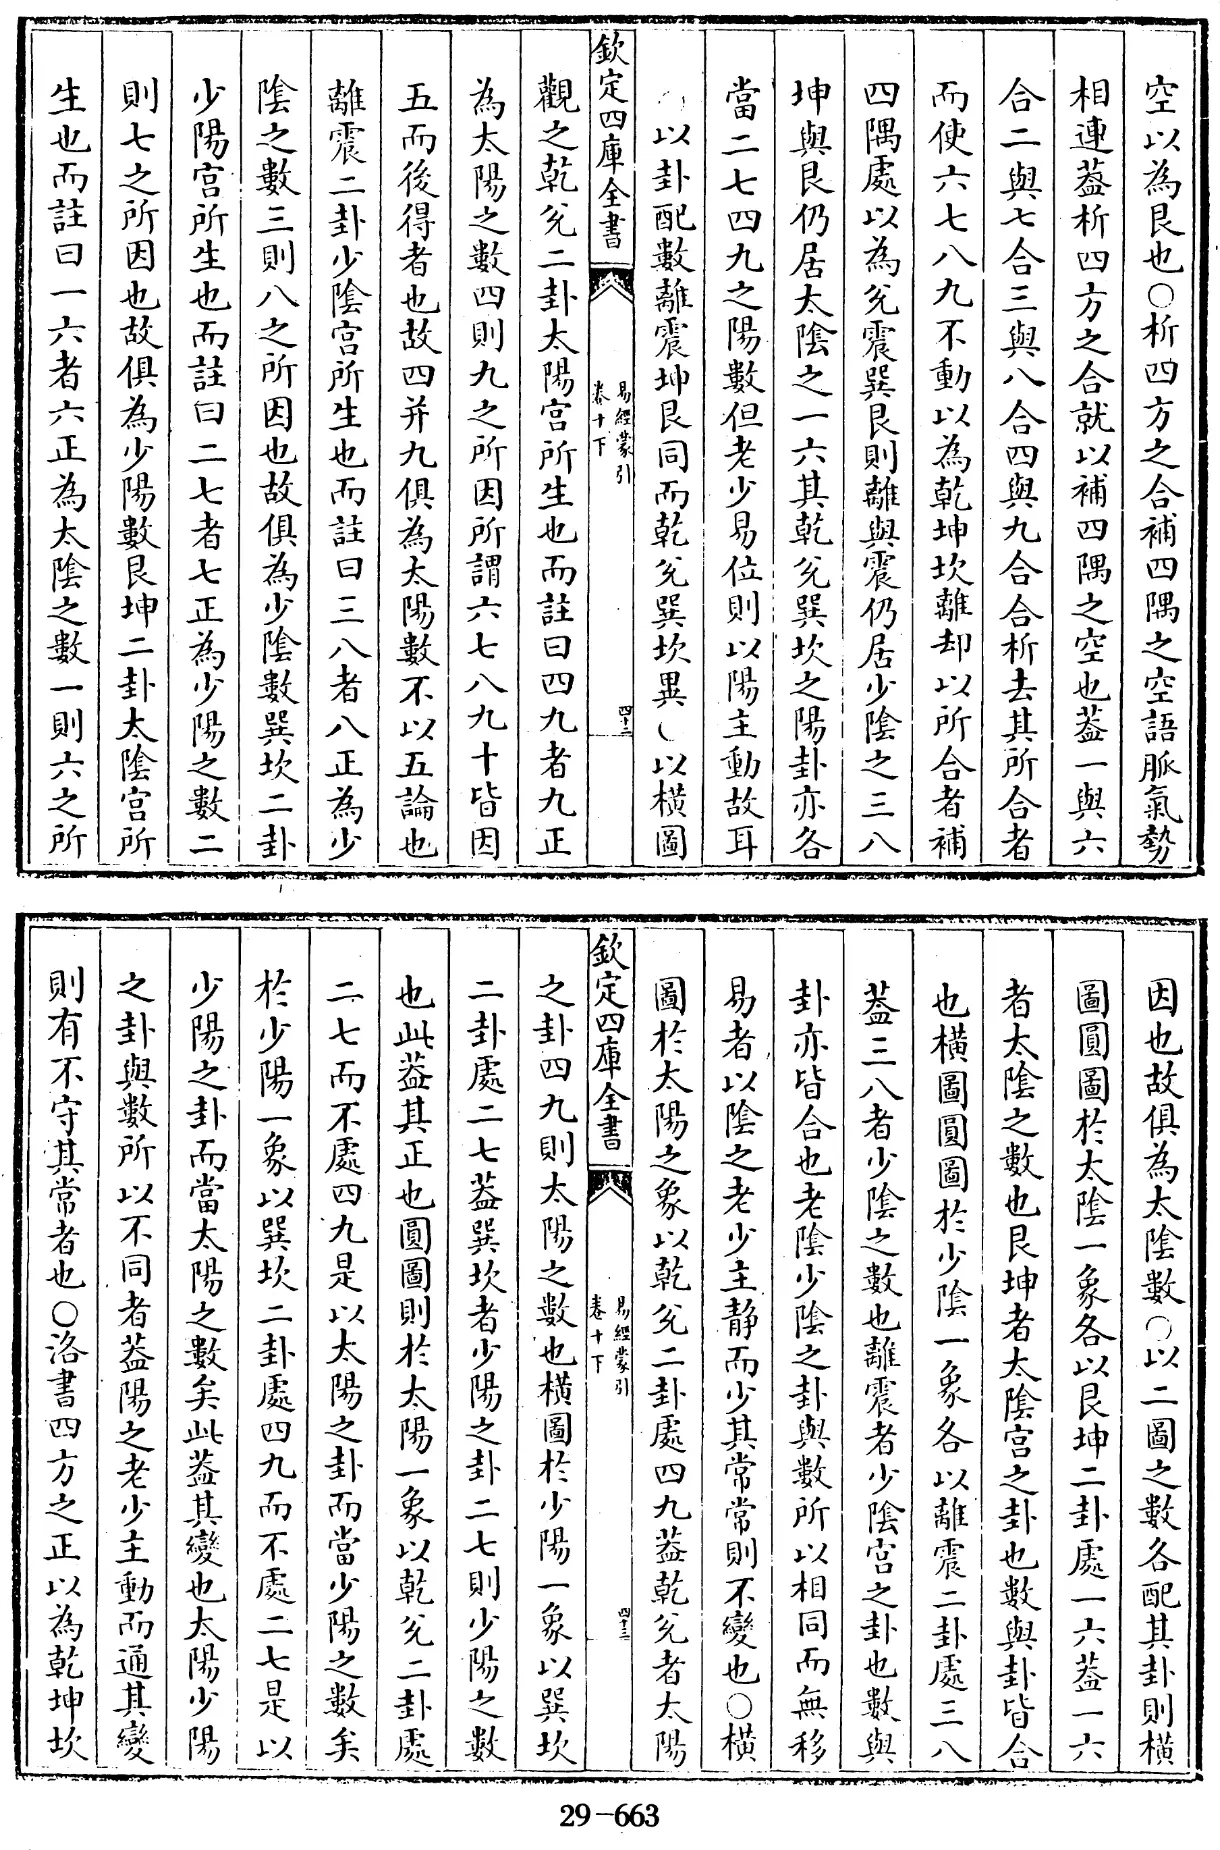 空以為艮也○析四方之合補四隅之空語脈氣勢
相連葢析四方之合就以補四隅之空也葢一與六
合二與七合三與八合四與九合合析去其所合者
而使六七八九不動以為乾坤坎離却以所合者補
四隅處以為兊震巽艮則離與震仍居少陰之三八
坤與艮仍居太陰之一六其乾兊巽坎之陽卦亦各
當二七四九之陽數但老少易位則以陽主動故耳
○以卦配數離震坤艮同而乾兊巽坎異○以橫圖
欽定四庫全書
易經蒙引
卷十下
四十二
觀之乾兊二卦太陽宮所生也而註曰四九者九正
為太陽之數四則九之所因所謂六七八九十皆因
五而後得者也故四并九俱為太陽數不以五論也
離震二卦少陰宮所生也而註曰三八者八正為少
陰之數三則八之所因也故俱為少陰數巽坎二卦
少陽宮所生也而註曰二七者七正為少陽之數二
則七之所因也故俱為少陽數艮坤二卦太陰宮所
生也而註曰一六者六正為太陰之數一則六之所
因也故俱為太陰數○以二圖之數各配其卦則橫
圖圓圖於太陰一象各以艮坤二卦處一六葢一六
者太陰之數也艮坤者太陰宮之卦也數與卦皆合
也橫圖圓圖於少陰一象各以離震二卦處三八
葢三八者少陰之數也離震者少陰宮之卦也數與
卦亦皆合也老陰少陰之卦與數所以相同而無移
易者以陰之老少主靜而少其常常則不變也○橫
圖於太陽之象以乾兊二卦處四九葢乾兊者太陽
欽定四庫全書
易經蒙引
卷十下
四十三
之卦四九則太陽之數也橫圖於少陽一象以巽坎
二卦處二七葢巽坎者少陽之卦二七則少陽之數
也此葢其正也圓圖則於太陽一象以乾兊二卦處
二七而不處四九是以太陽之卦而當少陽之數矣
於少陽一象以巽坎二卦處四九而不處二七是以
少陽之卦而當太陽之數矣此葢其變也太陽少陽
之卦與數所以不同者葢陽之老少主動而通其變
則有不守其常者也○洛書四方之正以為乾坤坎
29-663